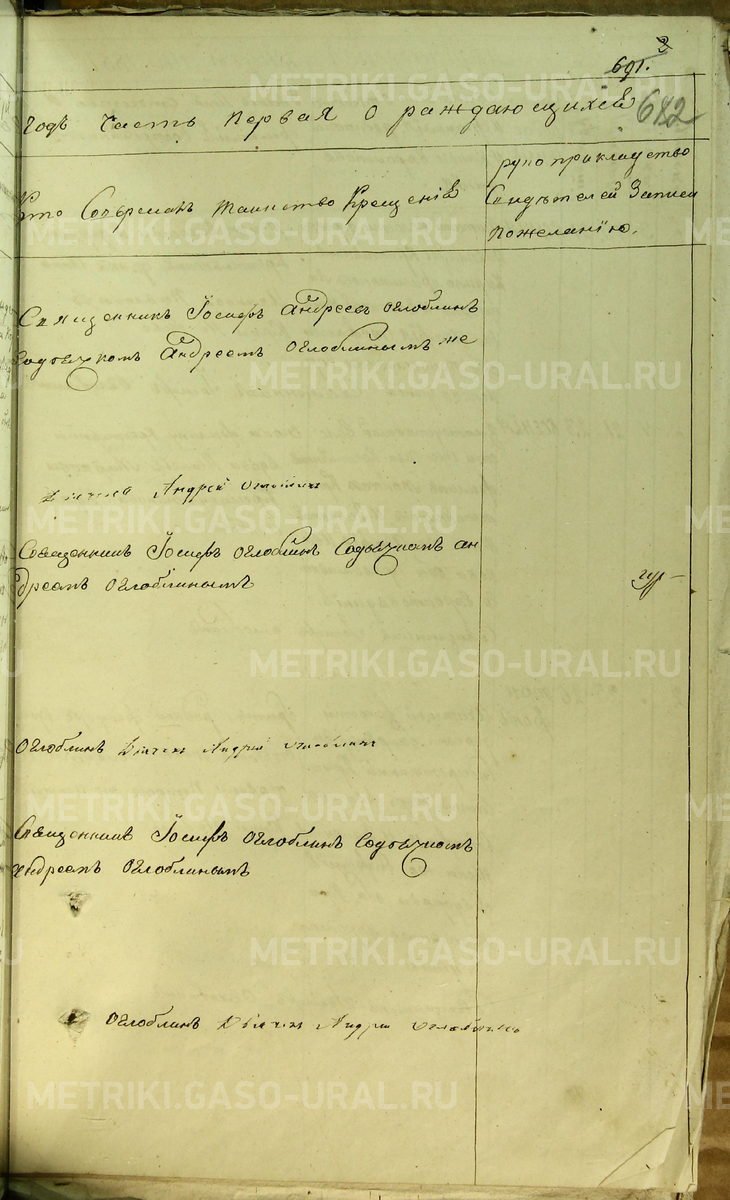 2
691.
642
годъ Часть Первая О раждающихся
Кто Совершалъ таинство Крещенія
рукоприкладство
Свидѣтелей Записи
Пожеланію.
Священникъ Іосифъ Андреевъ Оглоблинъ
Содьячкомъ Андреемъ Оглоблинымъ же
Дьячекъ Андрей Оглоблинъ
Священникъ Іосифъ Оглоблинъ Содьячкомъ ан
дреемъ Оглоблинымъ
Оглоблинъ Дьячекъ Андрей Оглоблинъ
Священникъ Іосифъ Оглоблинъ Содьячкомъ
Андреемъ Оглоблинымъ
Оглоблинъ Дьячекъ Андрей Оглоблинъ
METRIKI.GASO-URAL.RU